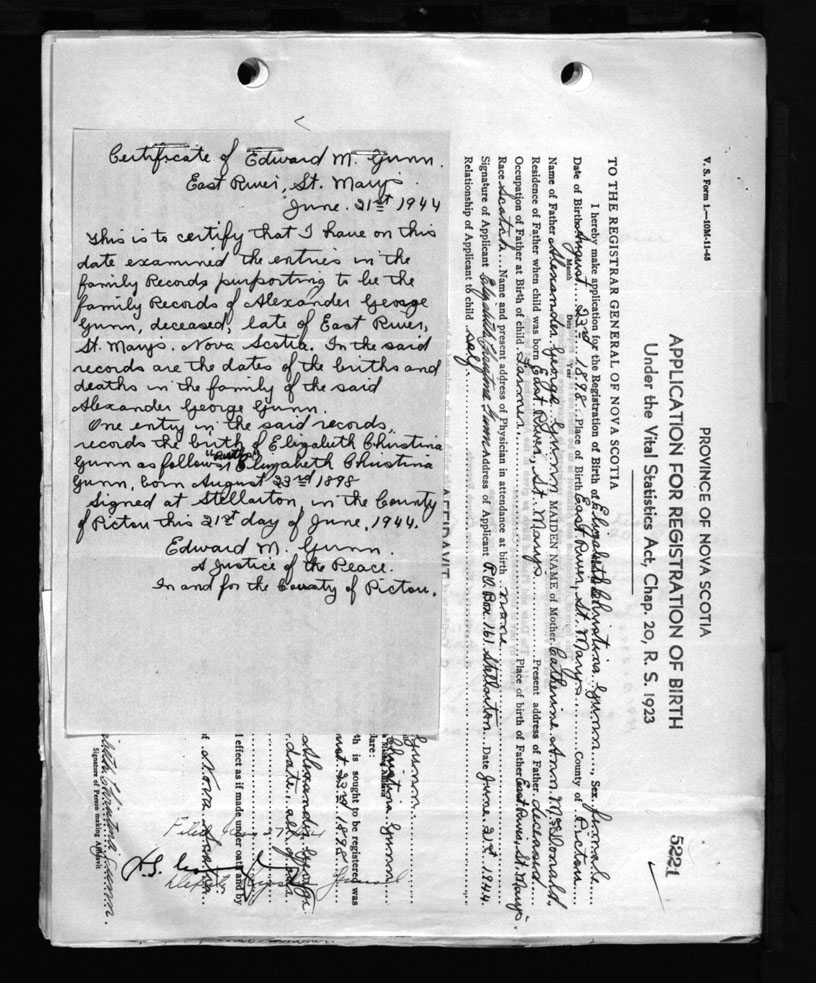 Certificate of Edward M. Gunn.
East River, St. Mary's
June. 21st 1944
This is to certify that I have on this
date examined the entries in the
family Records purporting to be the
family Records of Alexander George
Gunn, deceased, late of East River,
St. Mary's. Nova Scotia. In the said
records are the dates of the births and
deaths in the family of the said
Alexander George Gunn.
One entry in the said records,
records the birth of Elizabeth Christina
Gunn as follows, "Births" Elizabeth Christina
Gunn, born August 23rd 1898
Signed at Stellarton in the County
of Pictou this 21st day of June, 1944.
Edward M. Gunn.
A Justice of the Peace.
In and for the County of Pictou.
V. S. Form 1.—10M-11-43
PROVINCE OF NOVA SCOTIA
APPLICATION FOR REGISTRATION OF BIRTH
Under the Vital Statistics Act, Chap. 20, R. S. 1923
5221
TO THE REGISTRAR GENERAL OF NOVA SCOTIA
I hereby make application for the Registration of Birth of Elizabeth Christina Gunn, Sex female
Date of Birth August 23rd 1898 Place of Birth East River, St. Mary's County of Pictou
Month Date Year
Name of Father Alexander George Gunn MAIDEN NAME of Mother Catherine Ann McDonald.
Residence of Father when child was born East River, St. Marys. Present address of Father deceased
Occupation of Father at Birth of child Farmer. Place of birth of Father East River, St. Mary's.
Race Scotch Name and present address of Physician in attendance at birth none
Signature of Applicant Elizabeth Christina Gunn Address of Applicant P.O. Box 161 Stellarton. Date June 21st 1944.
Relationship of Applicant to child self
AFFIDAVIT
Gunn
Christina Gunn
lare:
th is sought to be registered was
ust 23rd 1898
Alexander George
date all of
l effect as if made under oath and by
f Nova Scotia
Christina Gunn.
Signature of Person making Affidavit